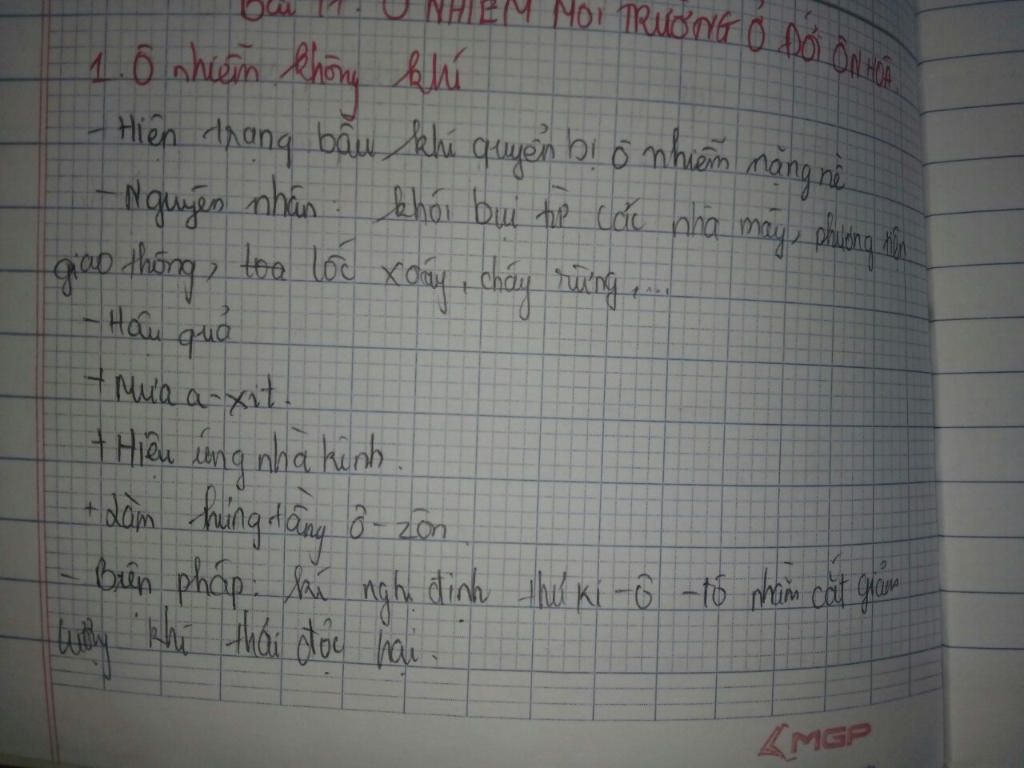 Bài 17: Ô NHIỄM MÔI TRƯỜNG Ở ĐỚI ÔN HÒA
1. Ô nhiễm không khí
- Hiện trạng bầu khí quyển bị ô nhiễm nặng nề
- Nguyên nhân: khói bụi từ các nhà máy, phương tiện
giao thông, lốc xoáy, cháy rừng,...
- Hậu quả
+ Mưa a-xít.
+ Hiệu ứng nhà kính.
+ Làm thủng tầng ô-zôn
- Biện pháp: kí nghị định thư ki-ô-tô nhằm cắt giảm
lượng khí thải độc hại.
MGP